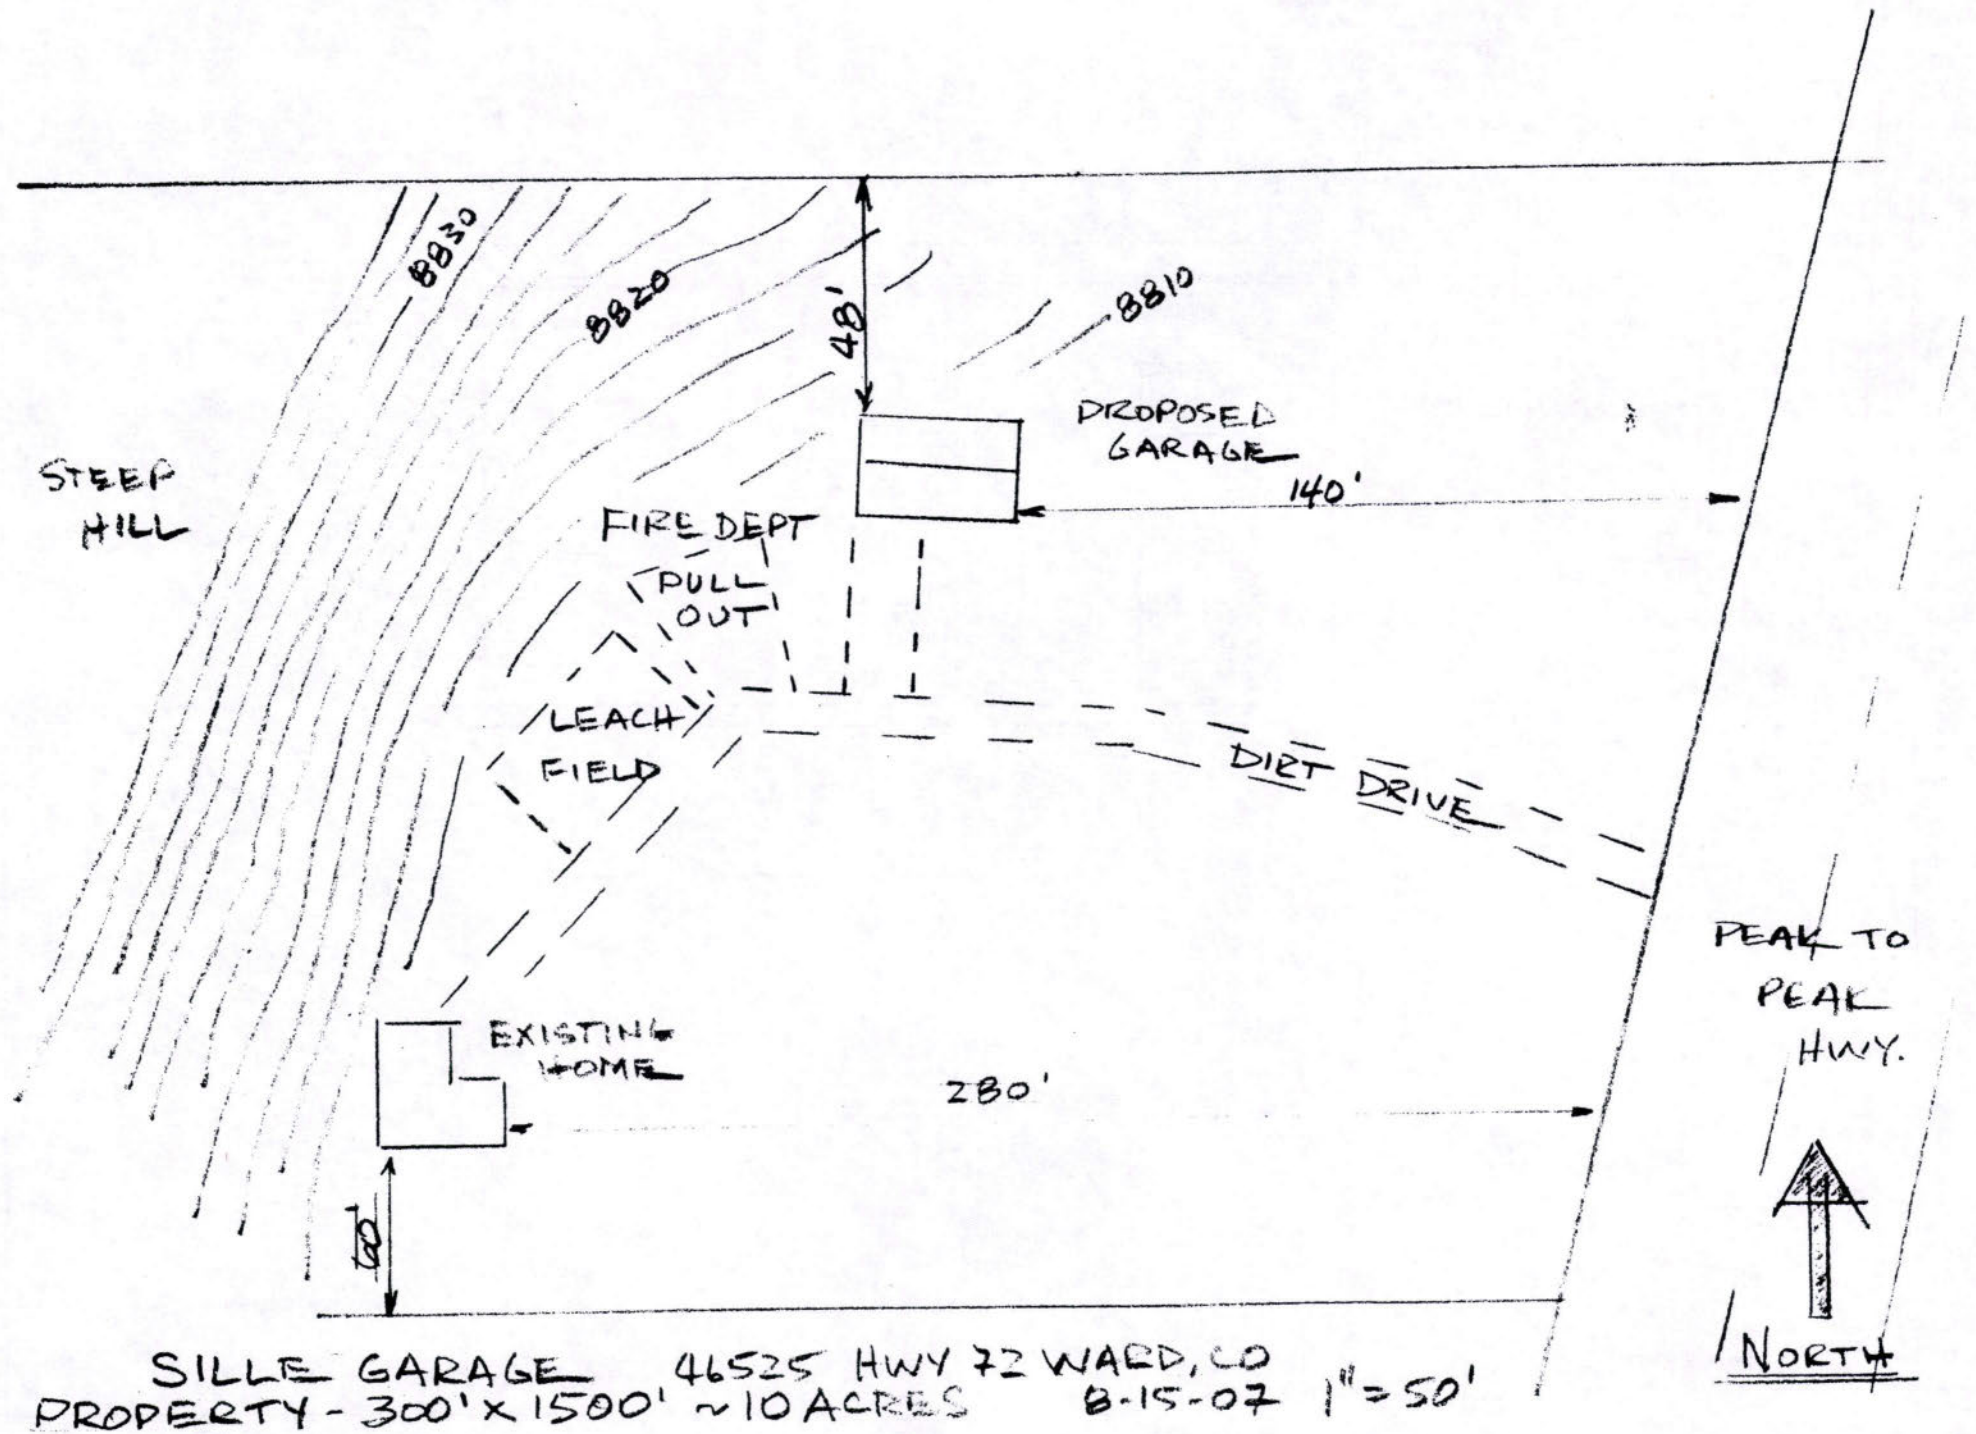 8830
8820
8810
48'
PROPOSED
GARAGE
140'
STEEP
HILL
FIRE DEPT
PULL
OUT
LEACH
FIELD
DIRT DRIVE
PEAK TO
PEAK
HWY.
EXISTING
HOME
280'
60'
NORTH
SILLE GARAGE 46525 HWY 72 WARD, CO
PROPERTY - 300' X 1500' ~ 10 ACRES 8-15-07 1" = 50'